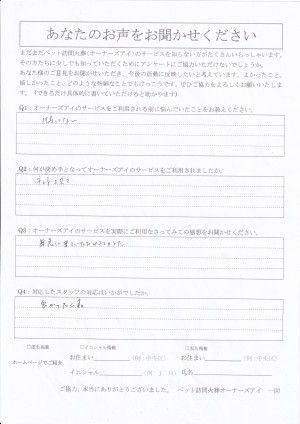 あなたのお声をお聞かせください
まだまだペット訪問火葬(オーナーズアイ)のサービスを知らない方がたくさんいらっしゃいます。
その方たちに少しでも知っていただくためにアンケートにご協力いただけないでしょうか。
あなた様のご意見をお聞かせいただき、今後の活動に反映したいと考えています。よかったこと、
嬉しかったこと、どのような些細なことでもけっこうです。ぜひご協力をよろしくお願いいたしま
す。(できるだけ具体的に書いていただけると助かります)
Q1：オーナーズアイのサービスをご利用される前に悩んでいたことをお教えください。
Q2：何が決め手となってオーナーズアイのサービスをご利用されましたか。
ネットを見て
Q3：オーナーズアイのサービスを実際にご利用なさってみての感想をお聞かせください。
Q4：対応したスタッフの対応はいかがでしたか。
良かったです
□匿名掲載 □イニシャル掲載 □実名掲載
ホームページでご紹介 お住まい (例：中央区) お住まい (例：中央区)
イニシャル (例：J．H) 氏名
ご協力、本当にありがとうございました。 ペット訪問火葬オーナーズアイ 一同